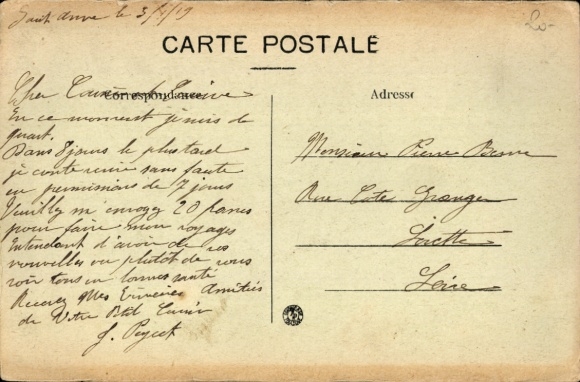 le 3/4/19
20-
CARTE POSTALE
Correspondance
Adresse
Cher Cousin
En ce moment je suis de
quart.
Dans 8 jours le plus tard
je conte venir sans faute
en permissions de 7 jours
Veuillez m'envoyez 20 francs
pour faire mon voyages
Intendant d'avoir de vos
nouvelles ou plutôt de vous
voir tous en bonnes santé
Recevez Mes Amitiés
de Votre Petit Cousin
Monsieur Pierre
Rue Cote Granger
Lorette
Loire